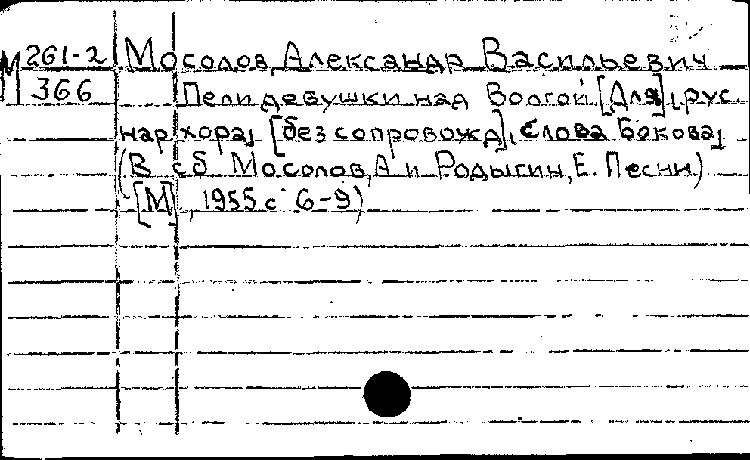 М 261-2 Мосолов, Александр Васильевич
366 Пели девушки над Волгой [Для] рус
нар хора, [без сопровожд], слова Бокова,
(В сб Мосолов, А и Родыгин, Е. Песни)
[М], 1955 с 6-9)